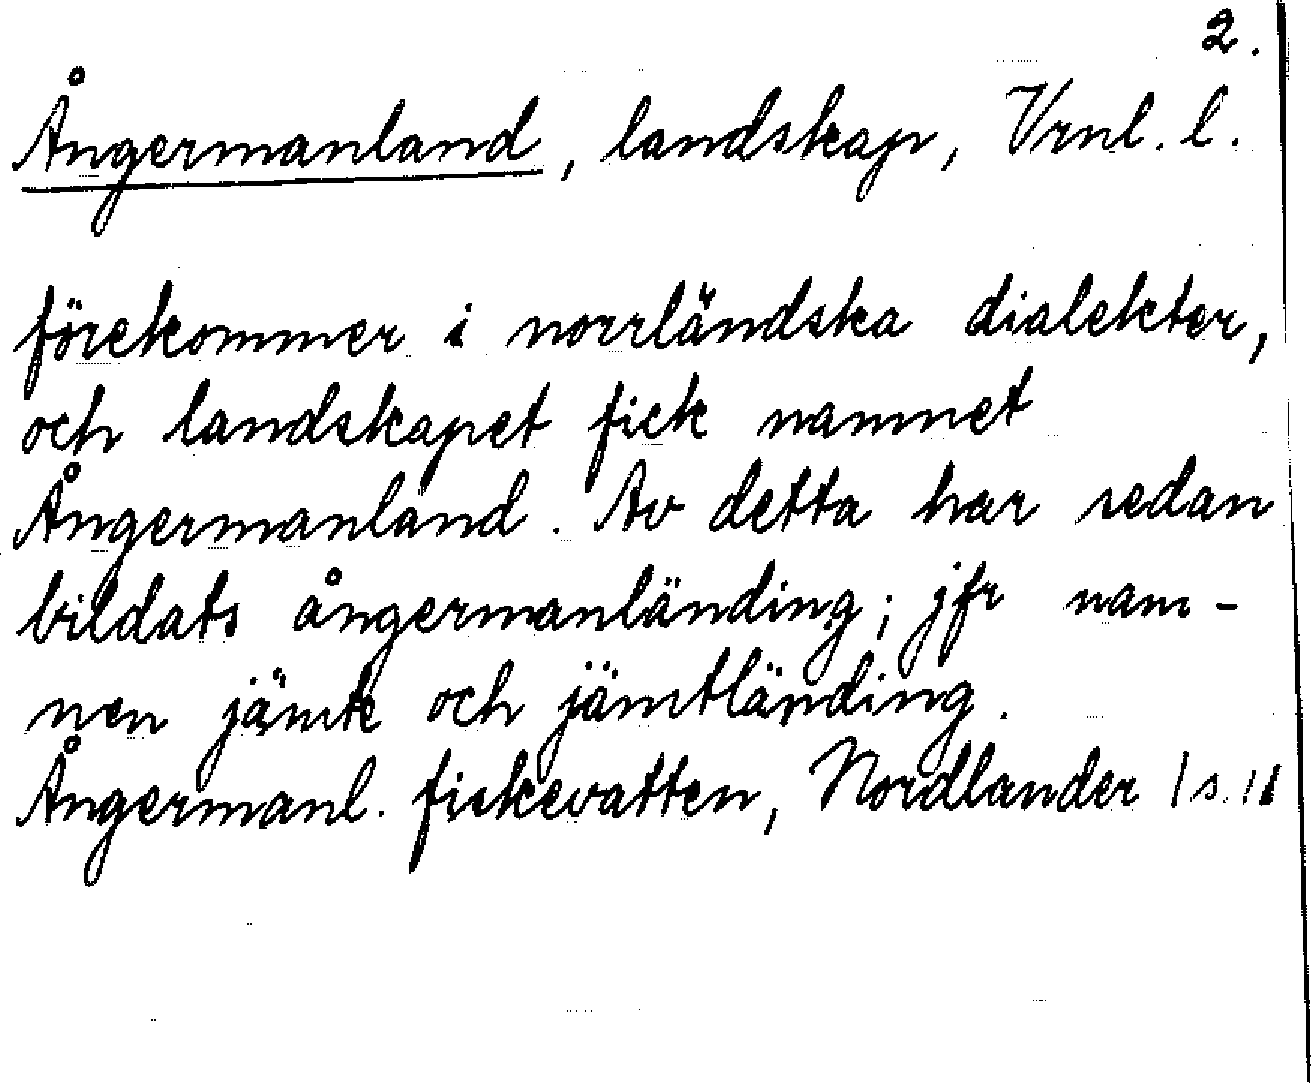 2.
Ångermanland, landskap, Vrnl. l.
förekommer i norrländska dialekter,
och landskapet fick namnet
Ångermanland. Av detta har sedan
bildats ångermanländing; jfr nam-
nen jämte och jämtländing.
Ångermanl. fiskevatten, Nordlander I s. 11